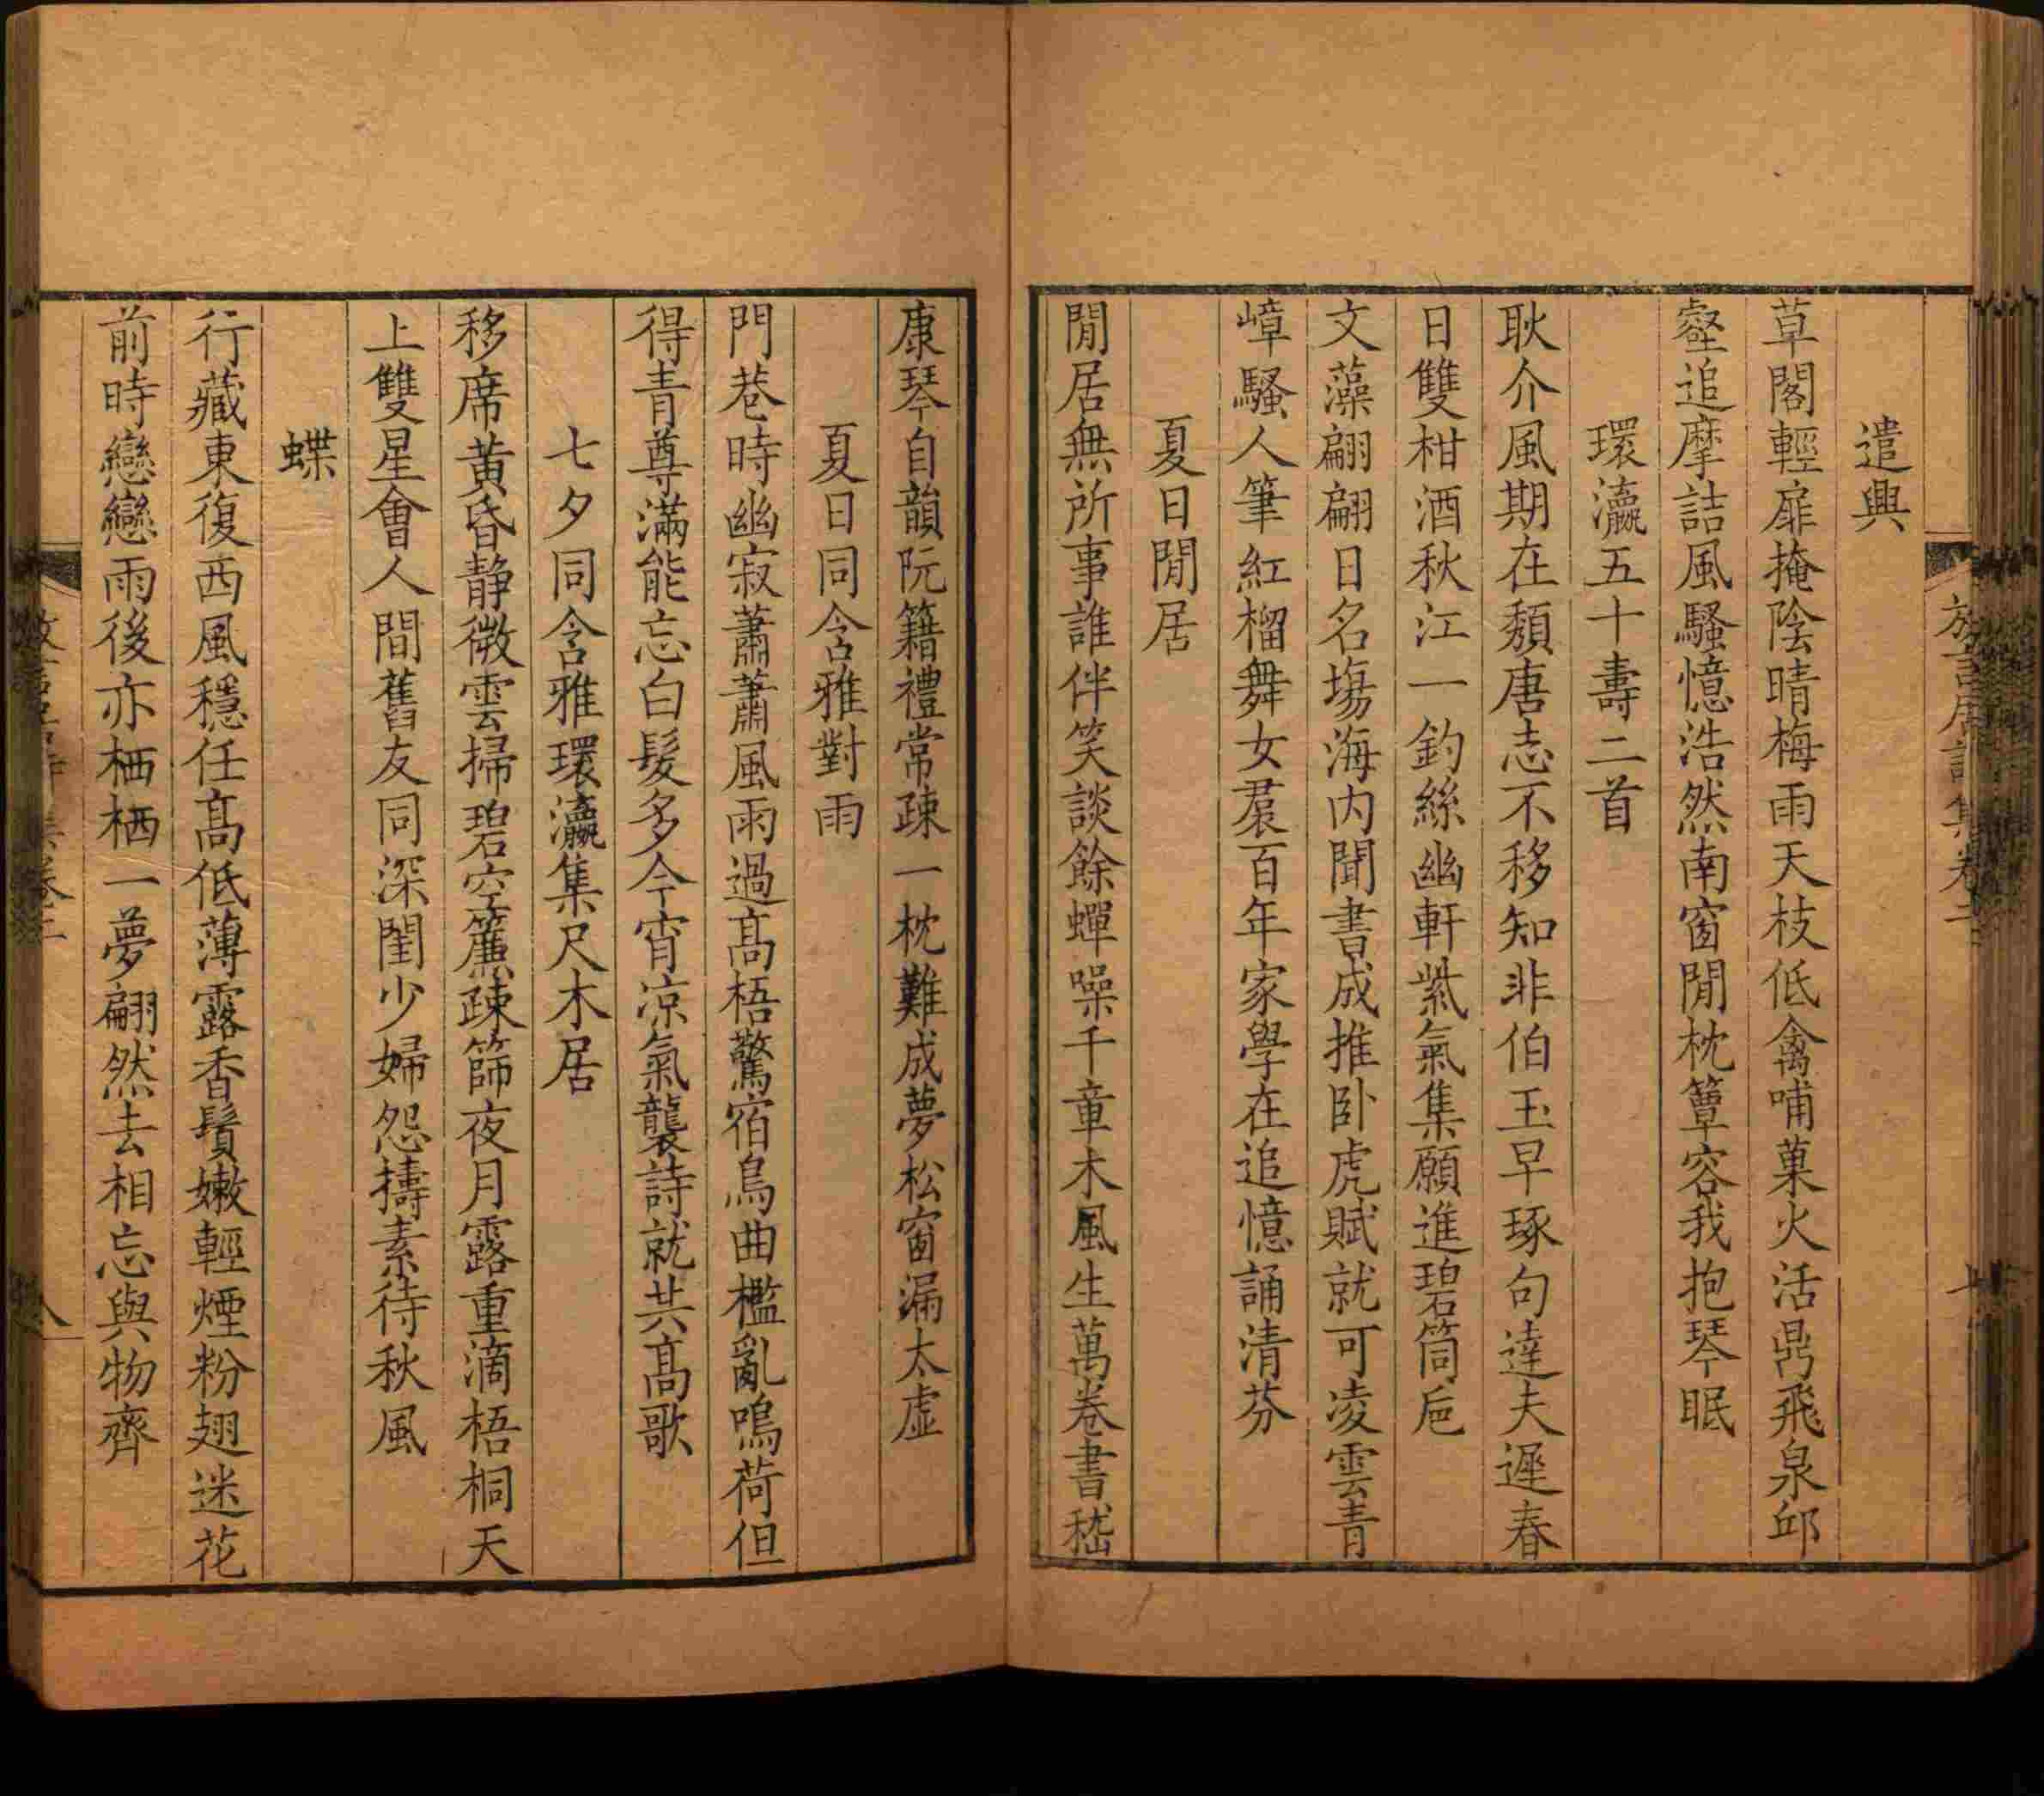 遣興
草閣輕扉掩陰晴梅雨天枝低禽哺菓火活鼎飛泉邱
壑追摩詰風騷憶浩然南窗閒枕簟容我抱琴眠
環瀛五十壽二首
耿介風期在頹唐志不移知非伯玉早琢句達夫遲春
日雙柑酒秋江一釣絲幽軒紫氣集願進碧筒巵
文藻翩翩日名塲海内聞書成推卧虎賦就可凌雲青
嶂騷人筆紅榴舞女裠百年家學在追憶誦清芬
夏日閒居
閒居無所事誰伴笑談餘蟬噪千童木風生萬卷書嵇
康琴自韻阮籍禮常疎一枕難成夢松窗漏太虛
夏日同含雅對雨
門巷時幽寂蕭蕭風雨過高梧驚宿鳥曲檻亂鳴荷但
得青尊滿能忘白髮多今宵凉氣襲詩就共高歌
七夕同含雅環瀛集尺木居
移席黄昏静微雲掃碧空簾疎篩夜月露重滴梧桐天
上雙星會人間舊友同深閨少婦怨擣素待秋風
蝶
行藏東復西風穩任高低薄露香鬚嫩輕煙粉翅迷花
前時戀戀雨後亦栖栖一夢翩然去相忘與物齊